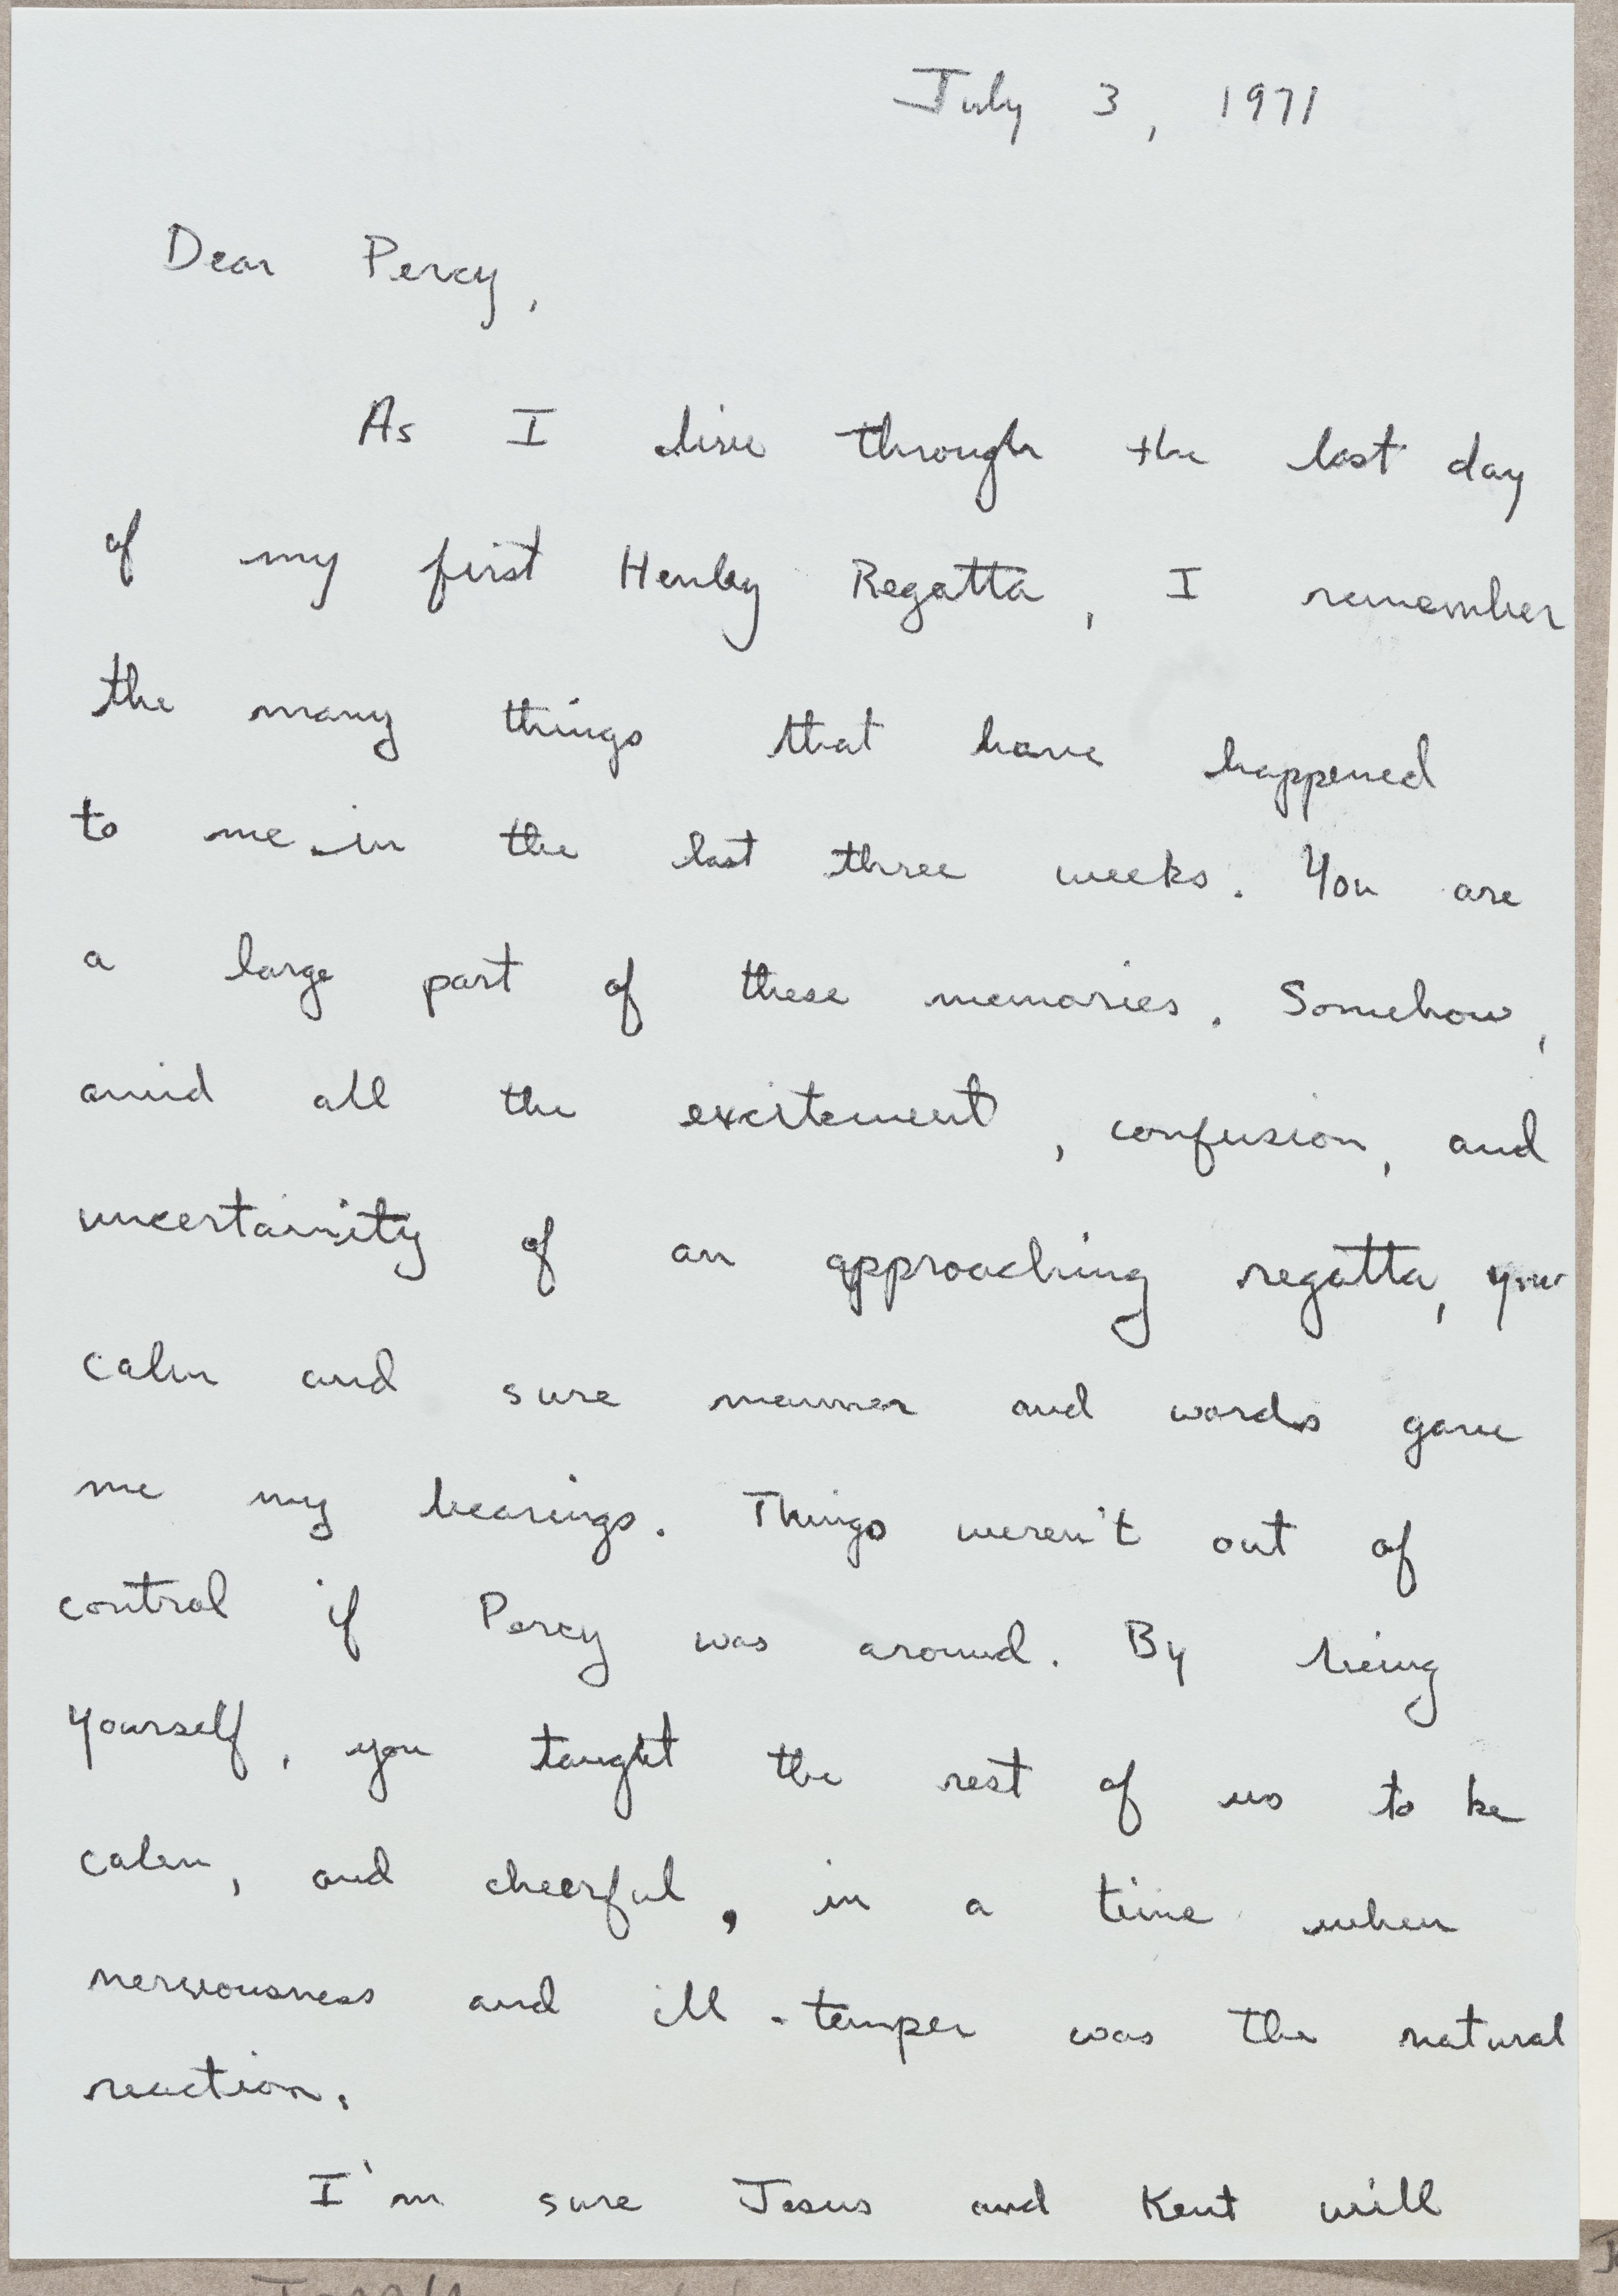 July 3, 1971
Dear Percy,
As I live through the last day
of my first Henley Regatta, I remember
the many things that have happened
to me in the last three weeks. You are
a large part of these memories. Somehow,
amid all the excitement, confusion, and
uncertainity of an approaching regatta, your
calm and sure manner and words gave
me my bearings. Things weren't out of
control if Percy was around. By being
yourself, you taught the rest of us to be
calm, and cheerful, in a time when
nerviousness and ill-temper was the natural
reaction.
I'm sure Jesus and Kent will